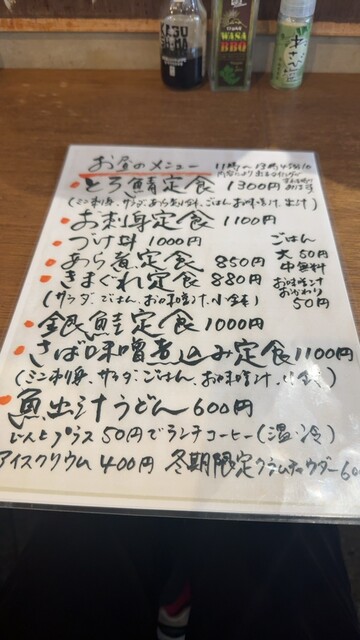 WASA
BBQ
お昼のメニュー 11時〜13時45分
とろ鯖定食 1300円
(ミニ刺身、サラダ、あら煮、小鉢、ごはん、お味噌汁、出汁)
お刺身定食 1100円
づけ丼 1000円
あら煮定食 850円
きまぐれ定食 880円
(サラダ、ごはん、お味噌汁、小鉢)
ごはん
大 50円
中無料
お味噌汁
おかわり
50円
銀鮭定食 1000円
さば味噌煮込み定食 1100円
(ミニ刺身、サラダ、ごはん、お味噌汁、小鉢)
魚出汁うどん 600円
プラス 50円でランチコーヒー(温・冷)
アイスクリウム 400円 冬期限定クラムチャウダー 60